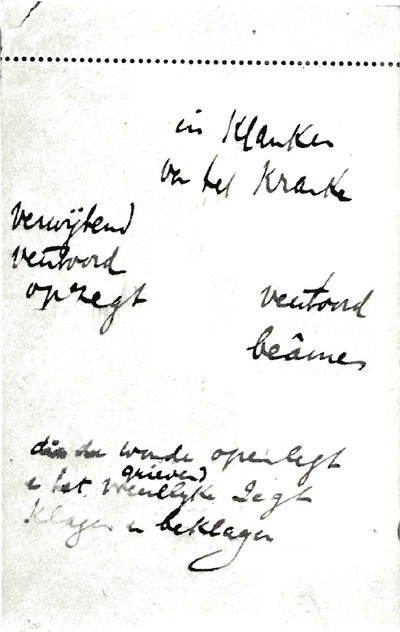 in Klanken
van het Kranke
verwijtend
ventwoord
opzegt
ventwoord
beâmen
wonde openlegt
grievend
en het zegt
Klagen en beklagen